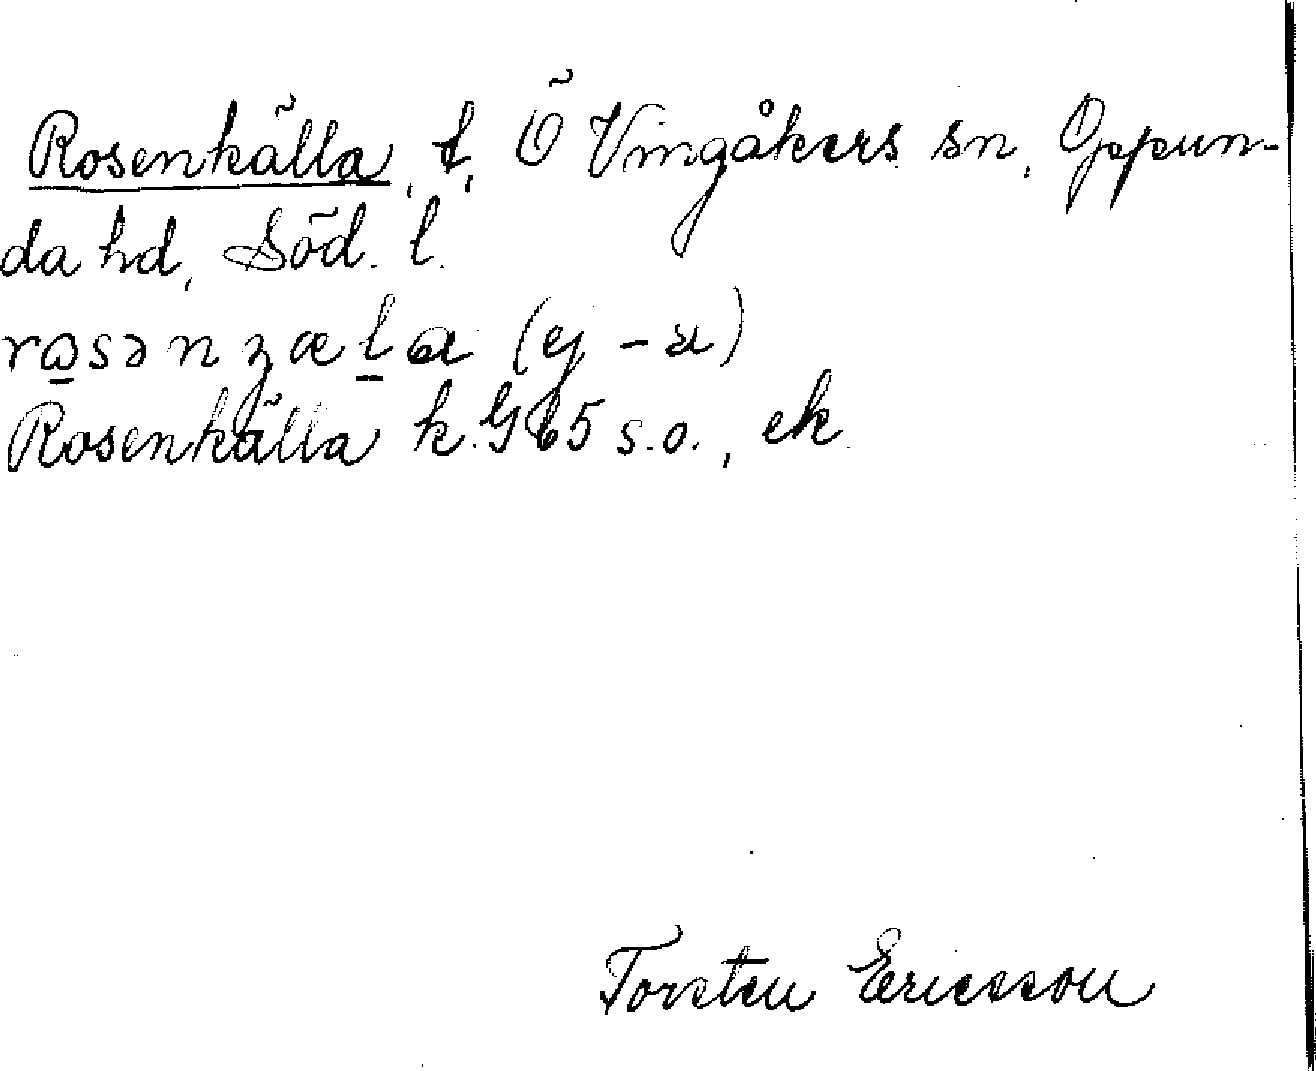 Rosenkälla, t, Ö Vingåkers sn, Oppun-
da hd, Söd. l.
rosənʒæla (ej -a)
Rosenkälla k. G 65 s.o., ek
Torsten Ericsson